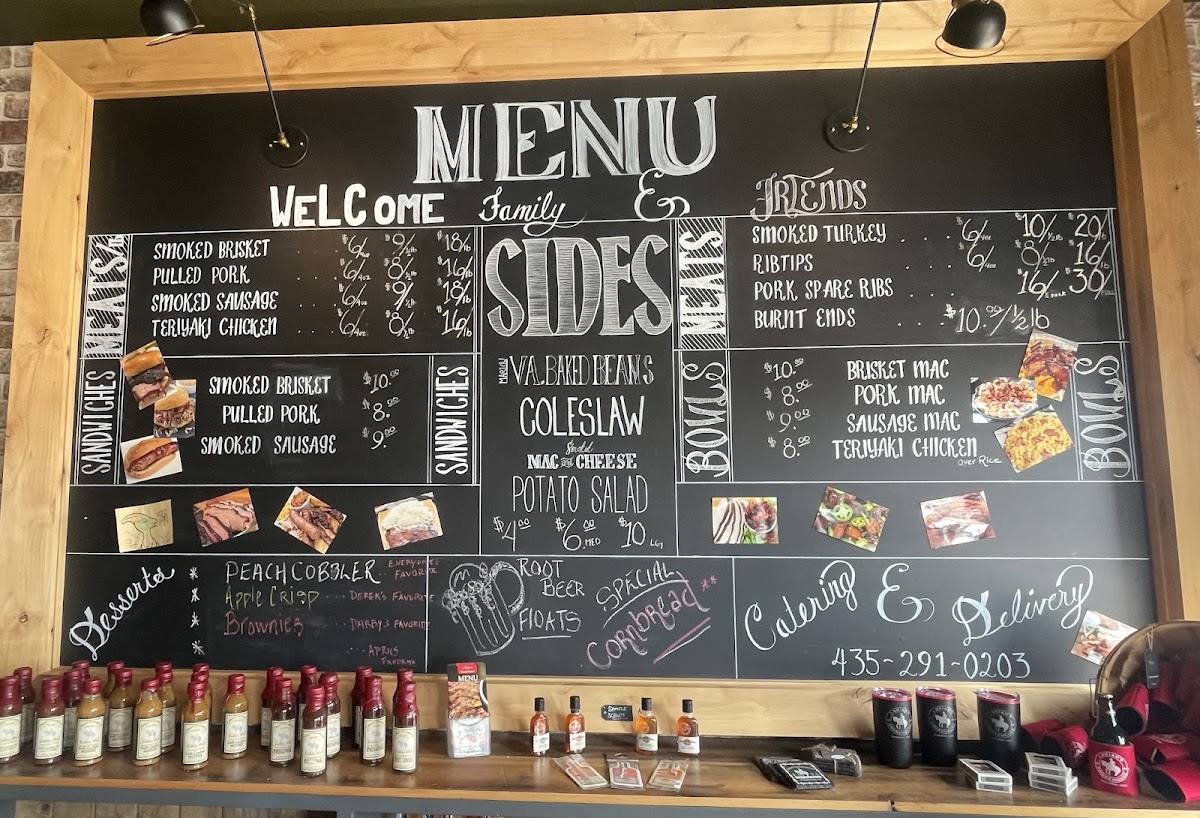 MENU
WELCOME Family & FRIENDS
MEATS
SMOKED BRISKET . . . $6/4oz $9/½lb $18/lb
PULLED PORK . . . . $6/4oz $8/½lb $16/lb
SMOKED SAUSAGE . . . $6/4oz $9/½lb $18/lb
TERIYAKI CHICKEN . . . . $6/4oz $8/½lb $16/lb
SANDWICHES
SMOKED BRISKET $10.00
PULLED PORK $8.00
SMOKED SAUSAGE $9.00
SANDWICHES
SIDES
VA. BAKED BEANS
COLESLAW
MAC and CHEESE
POTATO SALAD
$4.00 $6.00 MED $10 LG
MEATS
SMOKED TURKEY . . . . $6/4oz $10/½lb $20/lb
RIBTIPS . . . . $6/ $8/½lb $16/lb
PORK SPARE RIBS . . . . $16/ $30/
BURNT ENDS . . . . $10.00/½lb
BOWLS
$10.00 BRISKET MAC
$8.00 PORK MAC
$9.00 SAUSAGE MAC
$8.00 TERIYAKI CHICKEN
over Rice
BOWLS
Desserts
PEACH COBBLER ... EVERYONE'S FAVORITE
Apple Crisp ... DEREK'S FAVORITE
Brownies .... DARBY'S FAVORITE
... APRILS FAVORITE
ROOT
BEER
FlOATS
SPECIAL
CORNBREAD **
Catering & Delivery
435-291-0203
MENU
SAMPLE